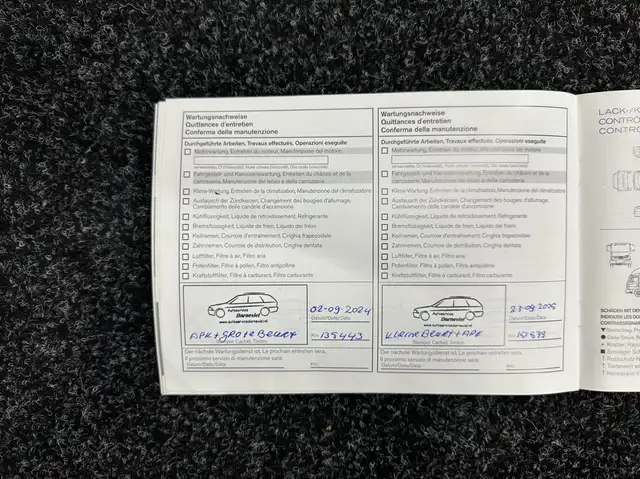 Wartungsnachweise
Quittances d'entretien
Conferma della manutenzione
Durchgeführte Arbeiten, Travaux effectués, Operazioni eseguite
Motorwartung, Entretien du moteur, Manutenzione del motore
Fahrgestell- und Karosseriewartung, Entretien du châssis et de la
carrosserie, Manutenzione del telaio e della carrozzeria
Klima-Wartung, Entretien de la climatisation, Manutenzione del climatizzatore
Austausch der Zündkerzen, Changement des bougies d'allumage,
Cambiamento delle candele d'accensione
Kühlflüssigkeit, Liquide de refroidissement, Refrigerante
Bremsflüssigkeit, Liquide de frein, Liquido dei freni
Keilriemen, Courroie d'entraînement, Cinghia trapezoidale
Zahnriemen, Courroie de distribution, Cinghia dentata
Luftfilter, Filtre à air, Filtro aria
Pollenfilter, Filtre à pollen, Filtro antipolline
Kraftstofffilter, Filtre à carburant, Filtro carburante
Autoservice
Darnevici
www.autoservicedarnevici.nl
02-09-2024
Datum/Date/Data
APK + grote Beurt
Km 139443
Stempel, Cachet, Timbro
Der nächste Wartungsdienst ist, Le prochain entretien sera,
Il prossimo servizio di manutenzione sarà:
Datum/Date/Data: Km:
Wartungsnachweise
Quittances d'entretien
Conferma della manutenzione
Durchgeführte Arbeiten, Travaux effectués, Operazioni eseguite
Motorwartung, Entretien du moteur, Manutenzione del motore
Fahrgestell- und Karosseriewartung, Entretien du châssis et de la
carrosserie, Manutenzione del telaio e della carrozzeria
Klima-Wartung, Entretien de la climatisation, Manutenzione del climatizzatore
Austausch der Zündkerzen, Changement des bougies d'allumage,
Cambiamento delle candele d'accensione
Kühlflüssigkeit, Liquide de refroidissement, Refrigerante
Bremsflüssigkeit, Liquide de frein, Liquido dei freni
Keilriemen, Courroie d'entraînement, Cinghia trapezoidale
Zahnriemen, Courroie de distribution, Cinghia dentata
Luftfilter, Filtre à air, Filtro aria
Pollenfilter, Filtre à pollen, Filtro antipolline
Kraftstofffilter, Filtre à carburant, Filtro carburante
Autoservice
Darnevici
www.autoservicedarnevici.nl
Datum/Date/Data
Kleine Beurt + APK
Km
Stempel, Cachet, Timbro
Der nächste Wartungsdienst ist, Le prochain entretien sera,
Il prossimo servizio di manutenzione sarà:
Datum/Date/Data: Km:
LACK-/K
CONTRÔ
CONTRO
SCHÄDEN MIT DE
INDIQUER LES DO
CONTRASSEGNARE